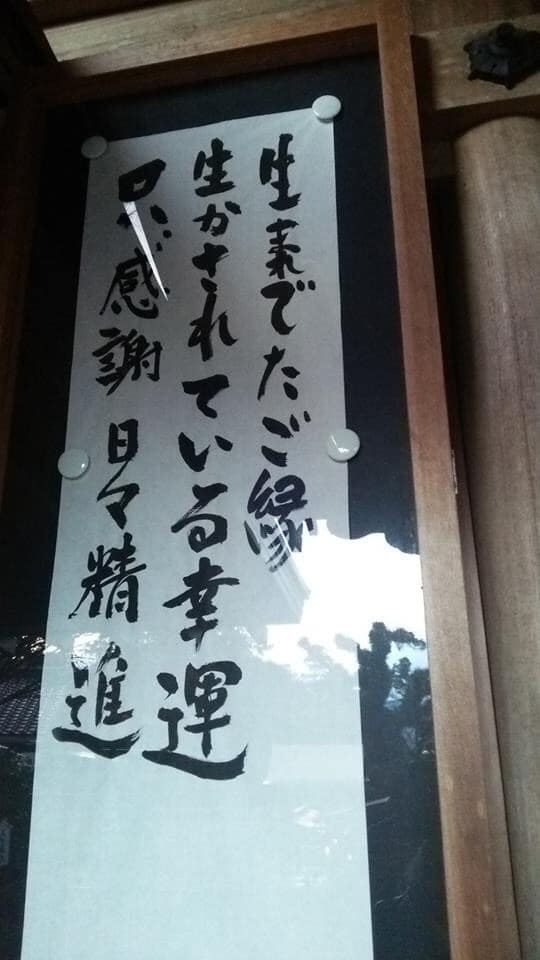 生まれでたご縁
生かされている幸運
只だ感謝 日々精進